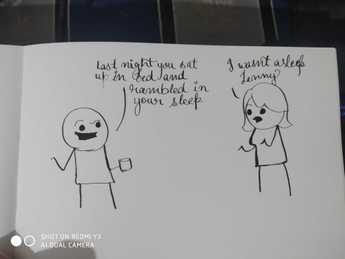 Last night you sat
up in bed and
rambled in
your sleep
I wasn't asleep
Lenny
SHOT ON REDMI Y3
AI DUAL CAMERA